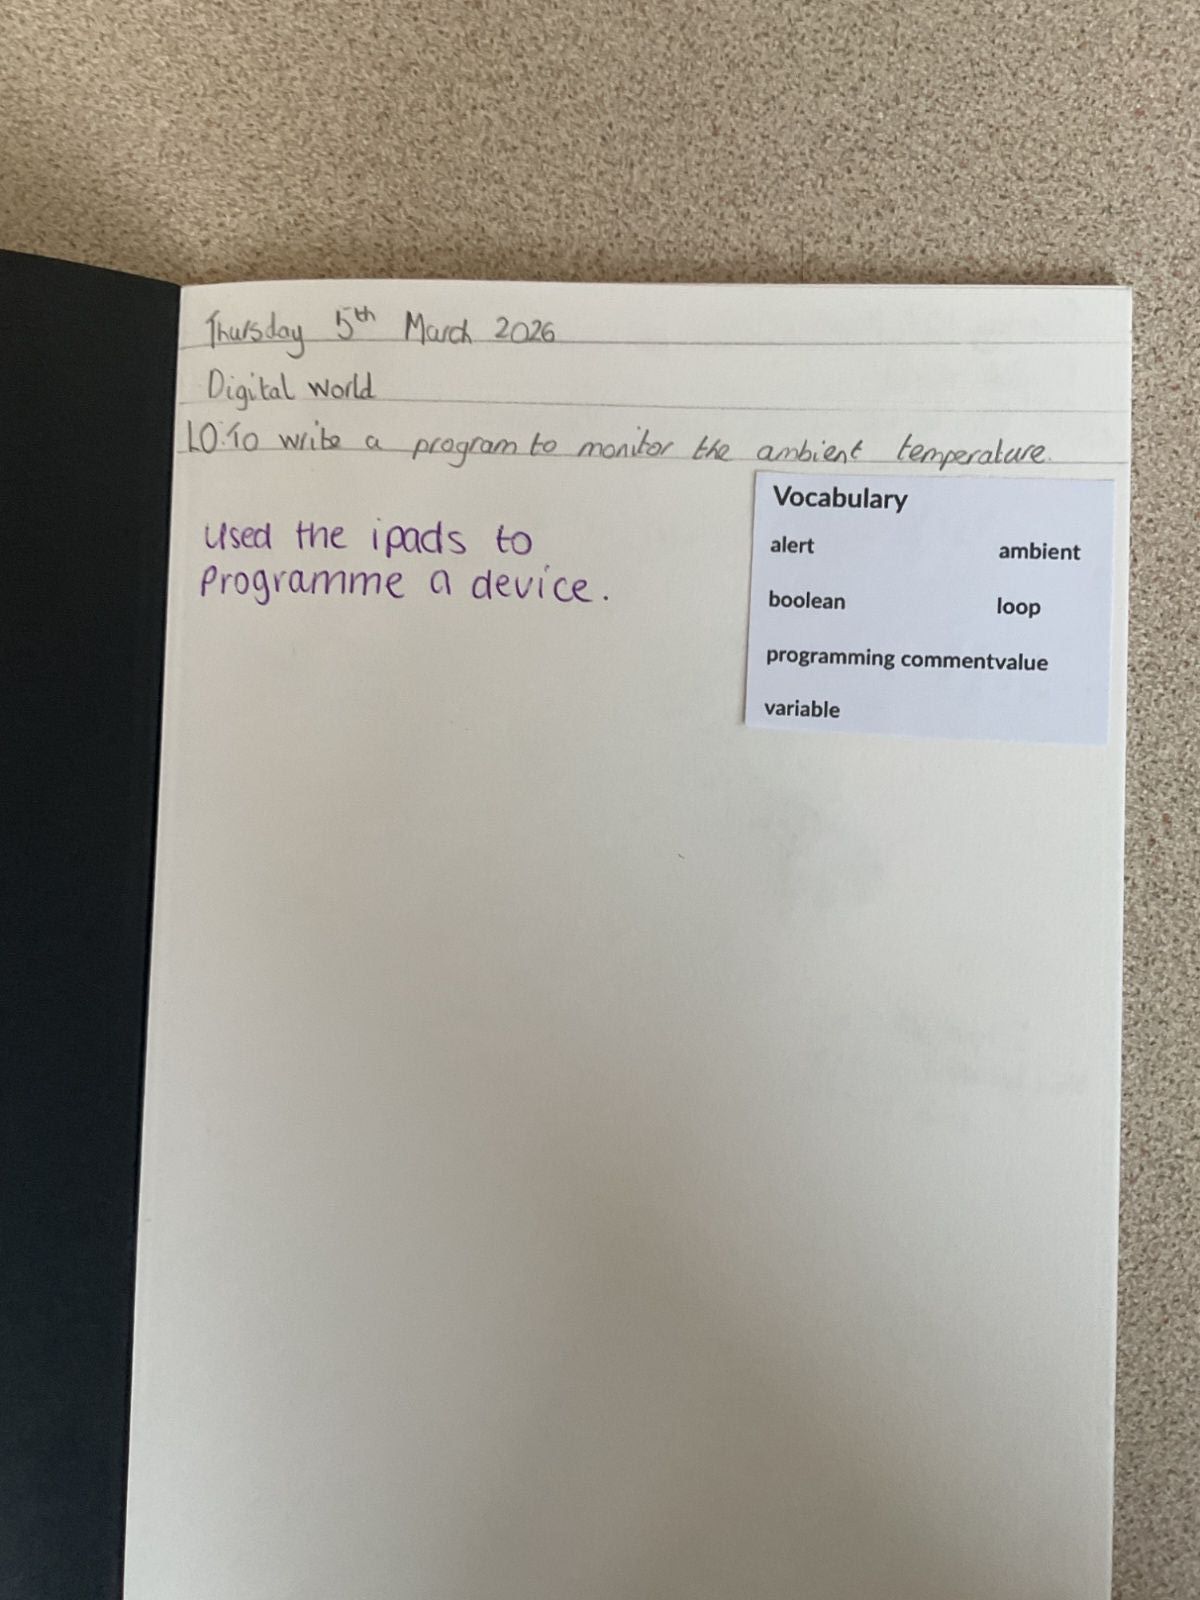 Thursday 5th March 2026
Digital world
LO: To write a program to monitor the ambient temperature.
Used the ipads to
Programme a device.
Vocabulary
alert ambient
boolean loop
programming commentvalue
variable